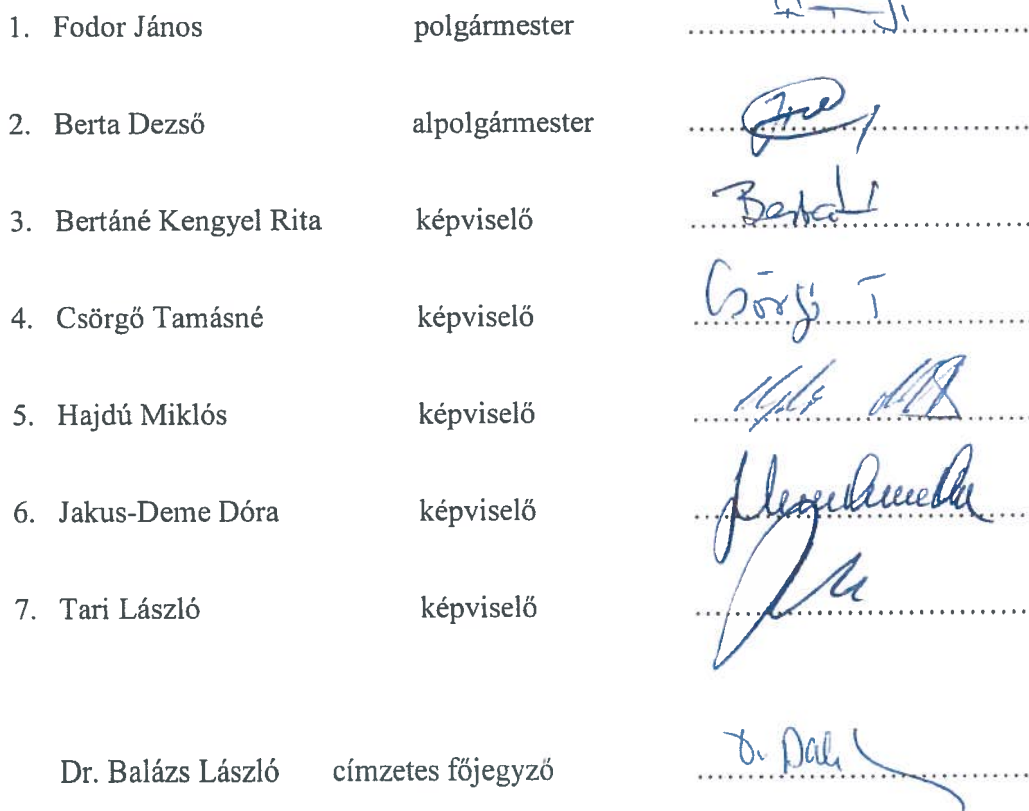 1. Fodor János polgármester
2. Berta Dezső alpolgármester
3. Bertáné Kengyel Rita képviselő Berta
4. Csörgő Tamásné képviselő Csörgő T
5. Hajdú Miklós képviselő
6. Jakus-Deme Dóra képviselő
7. Tari László képviselő
Dr. Balázs László címzetes főjegyző